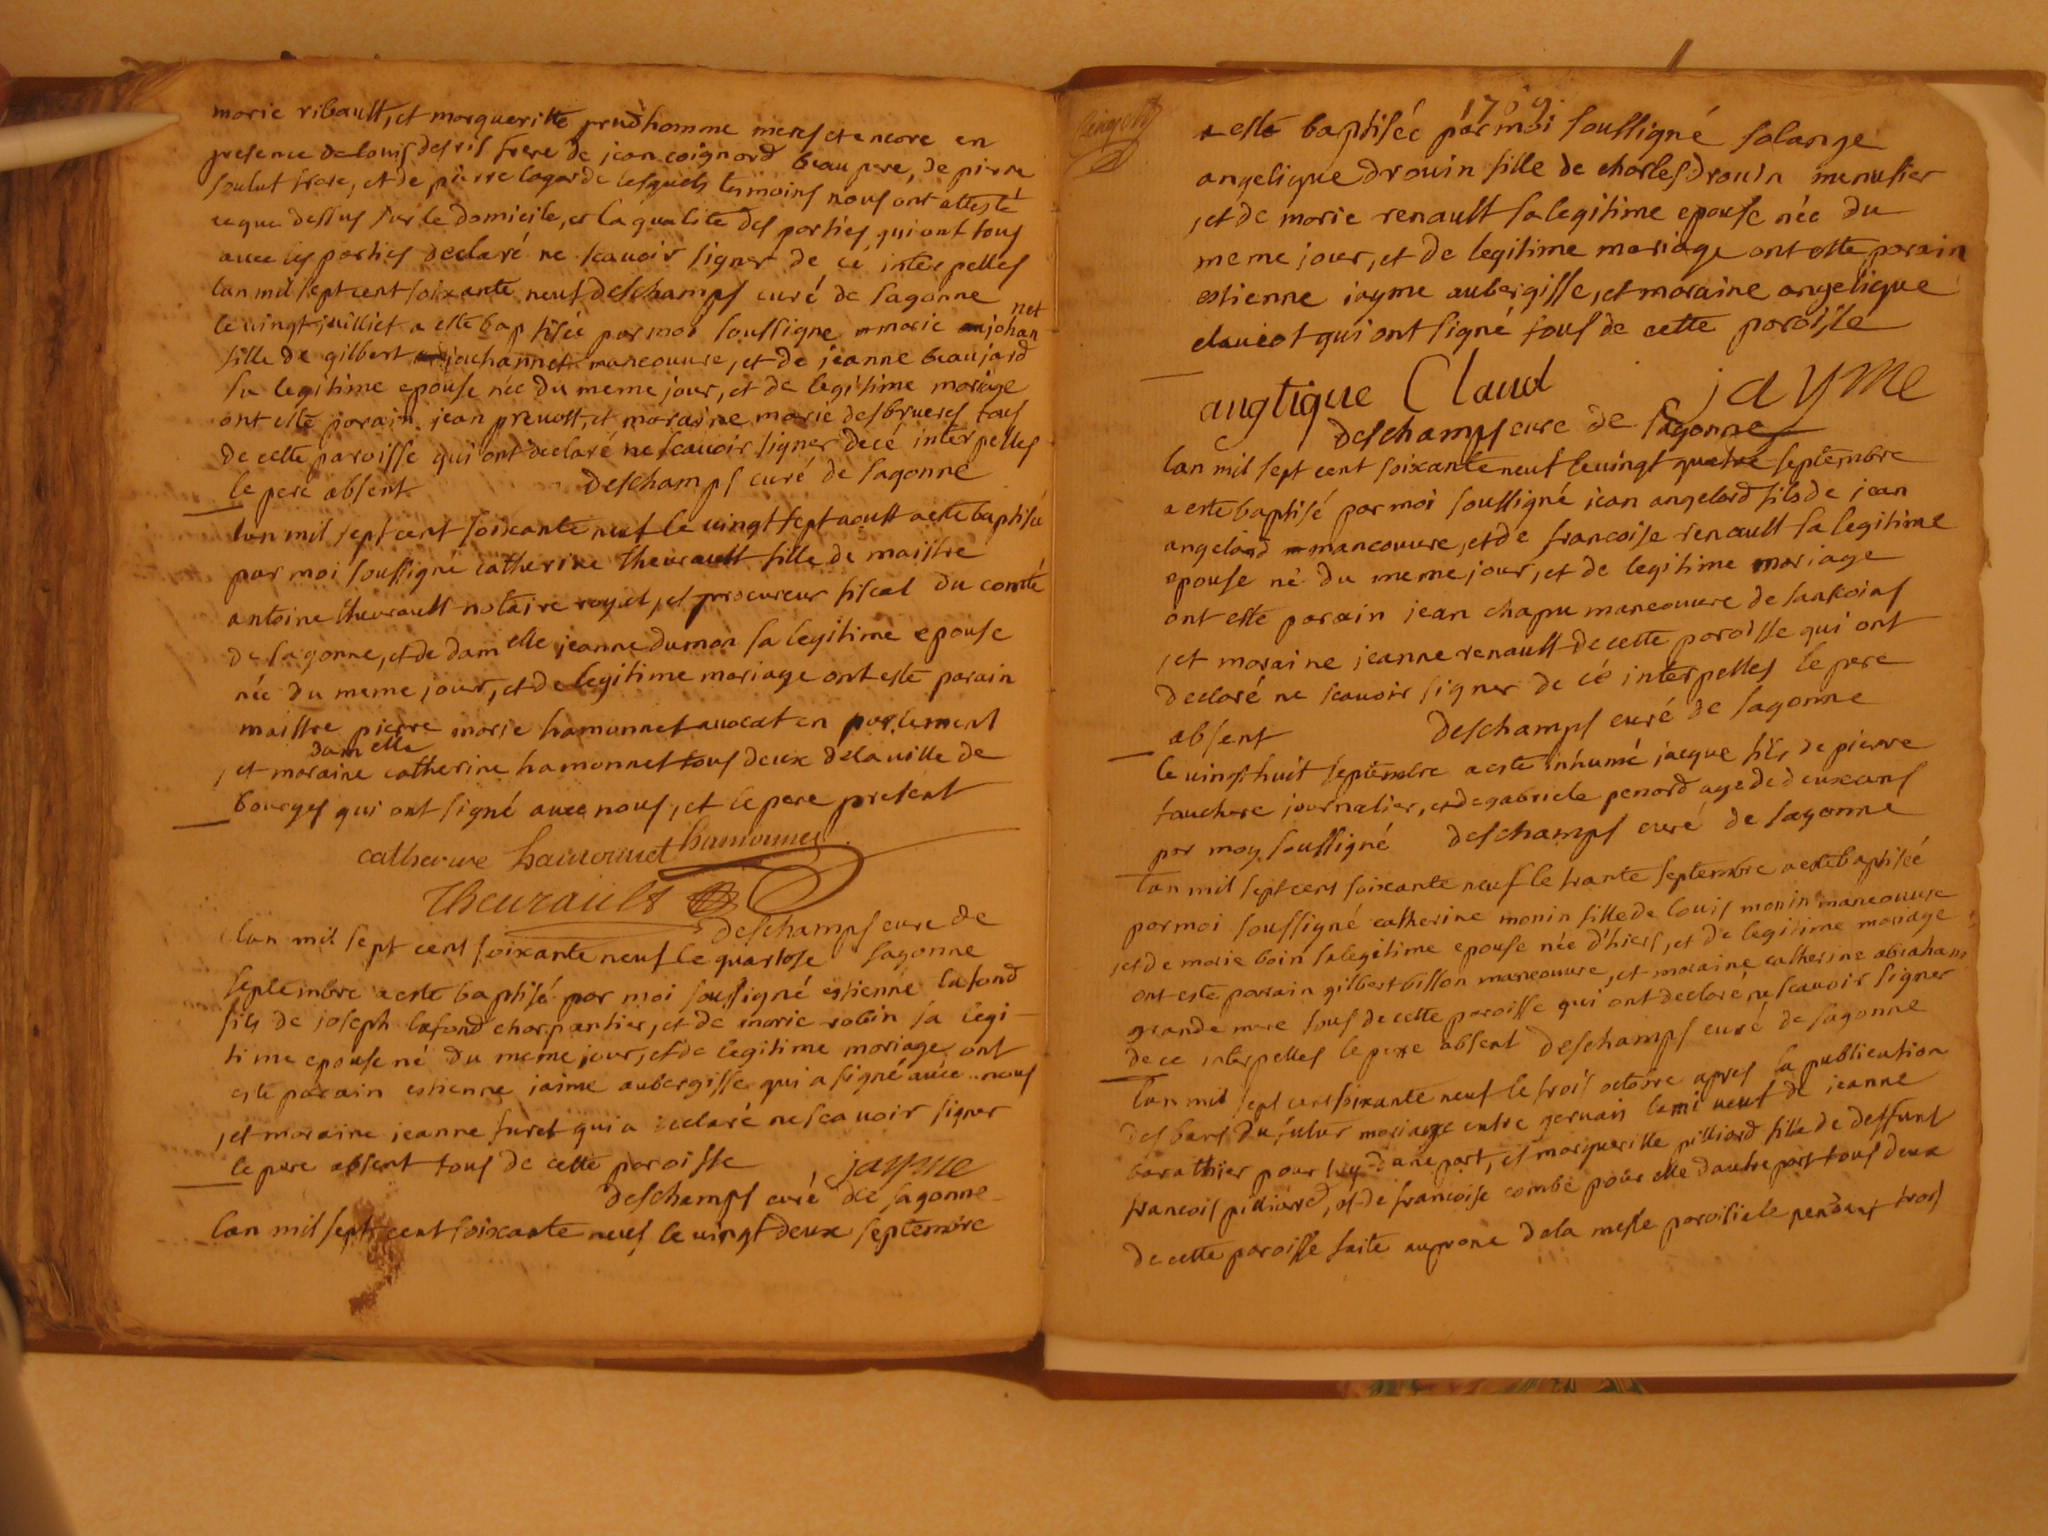 marie ribault, et margueritte prudhomme meres et encore en
presence de louis desris frere de jean coignard beau pere, de pierre
soulut frere, et de pierre lagarde lesquels temoins nous ont attesté
ce que dessus sur le domicile, et la qualité des parties, qui ont tous
avec les parties declaré ne scavoir signer de ce interpelles
lan mil sept cent soixante neuf deschamps curé de sagonne
le vingt juilliet a esté baptisée par moi soussigné marie johannet
fille de gilbert jouhannet manoeuvre, et de jeanne beaujard
sa legitime epouse née du meme jour, et de legitime mariage
ont esté parain jean prevost, et maraine marie desbrueres tous
de cette paroisse qui ont declaré ne scavoir signer de cé interpelles
le pere absent deschamps curé de sagonne
lan mil sept cent soixante neuf le vingt sept aoust a esté baptisée
par moi soussigné catherine theurault fille de maiitre
antoine theurault notaire royal, et procureur fiscal du comté
de sagonne, et de damelle jeanne dumon sa legitime epouse
née du meme jour, et de legitime mariage ont esté parain
maistre pierre marie hamonnet avocat en parlement
, et maraine damelle catherine hamonnet tous deux de la ville de
bourges qui ont signé avec nous, et le pere present
catherine hamonnet hamonnet
Theurault
deschamps curé de
lan mil sept cent soixante neuf le quartose sagonne
septembre a esté baptisé par moi soussigné estienne lafond
fils de joseph lafond charpantier, et de marie robin sa legi-
time epouse né du meme jour, et de legitime mariage ont
esté parain estienne jaime aubergisse qui a signé avec nous
, et maraine jeanne furet qui a declaré ne scavoir signer
le pere absent tous de cette paroisse jayme
deschamps curé de sagonne
lan mil sept cent soixante neuf le vingt deux septembre
1769.
a esté baptisée par moi soussigné solange
angelique drouin fille de charles drouin menusier
, et de marie renault sa legitime epouse née du
meme jour, et de legitime mariage ont esté parain
estienne jayme aubergisse, et maraine angelique
claucot qui ont signé tous de cette paroisse
angtique Claud jayme
deschamps cure de sagonne
lan mil sept cent soixante neuf le vingt quatre septembre
a esté baptisé par moi soussigné jean angelard fils de jean
angelard mancouvre, et de francoise renault sa legitime
epouse né du meme jour, et de legitime mariage
ont esté parain jean chapu mancouvre de sankoins
, et maraine jeanne renault de cette paroisse qui ont
declaré ne scavoir signer de cé interpelles le pere
absent deschamps curé de sagonne
le vingt huit septembre a esté inhumé jacque fils de pierre
touchere journalier, et de gabriele penard agé de deux ans
par moy soussigné deschamps curé de sagonne
lan mil sept cent soixante neuf le trante septembre a esté baptisée
par moi soussigné catherine monin fille de louis monin mancouvre
, et de marie boin sa legitime epouse née d'hiers, et de legitime mariage
ont esté parain gilbert billon mancouvre, et maraine catherine abraham
grande mere tous de cette paroisse qui ont declaré ne scavoir signer
de ce interpelles le pere absent deschamps curé de sagonne
lan mil sept cent soixante neuf le trois octobre apres la publication
des bans du futur mariage entre gervais lami veuf de jeanne
barathier pour luy d'une part, et marguerille pilliard fille de deffunt
francois pilliard, et de francoise combe pour elle d'autre part tous deux
de cette paroisse faite au prone de la messe paroisiele pendant trois